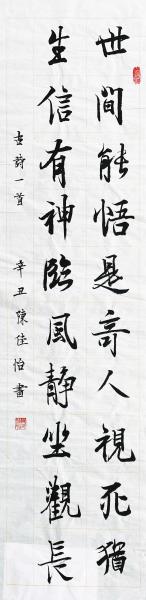 世間能悟是奇人視死猶
生信有神臨風静坐觀長
古詩一首 辛丑陳佳怡書